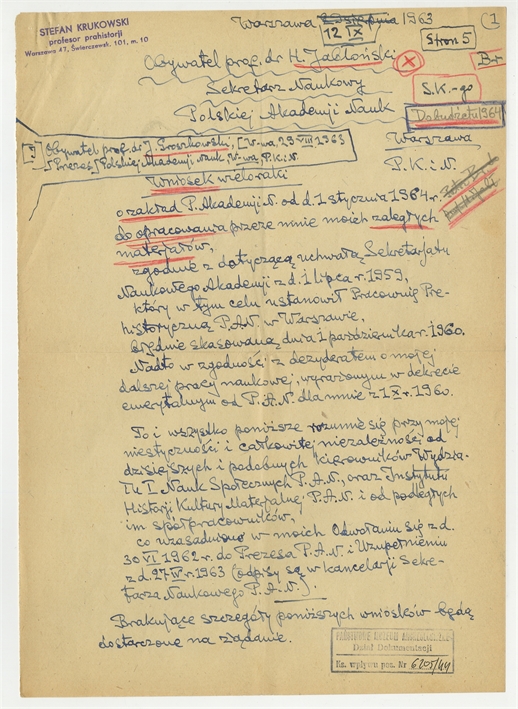 STEFAN KRUKOWSKI
profesor prahistorji
Warszawa 47, Świerczewsk. 101, m. 10
Warszawa 1963 (1
12 IX
Stron 5
Obywatel prof. dr H. Jabłoński
B-r
Sekretarz Naukowy
S.K.-go
Polskiej Akademji Nauk
Do budżetu 1964
Obywatel prof. dr J. Groszkowski, W-wa, 29 VIII 1963
Prezes Polskiej Akademji Nauk, W-wa, P.K.i.N.
Warszawa
P.K.i.N.
Wniosek wieloraki
o zakład P. Akademji N. od d. 1 stycznia 1964 r.
do opracowania przeze mnie moich zaległych
materjałów,
zgodnie z dotyczącą uchwałą Sekretarjatu
Naukowego Akademji z d. 1 lipca r. 1959,
który w tym celu ustanowił Pracownię Pre-
historyczną P.A.N. w Warszawie,
błędnie skasowaną dnia 1 października r. 1960.
Nadto w zgodności z dezyderatem o mojej
dalszej pracy naukowej, wyrażonym w dekrecie
emerytalnym od P.A.N. dla mnie z 1 X r. 1960.
To i wszystko poniższe rozumie się przy mojej
niestyczności i całkowitej niezależności od
dzisiejszych i podobnych kierowników Wydzia-
łu I Nauk Społecznych P.A.N., oraz Instytutu
Historji Kultury Materjalnej P.A.N. i od podległych
im spółpracowników,
co uzasadniono w moich Odwołaniu się z d.
30 VI 1962 r. do Prezesa P.A.N. i Uzupełnieniu
z d. 27 IV r. 1963 (odpisy są w kancelarji Sekre-
tarza Naukowego P.A.N.).
Brakujące szczegóły poniższych wniosków będą
dostarczone na żądanie.
PAŃSTWOWE MUZEUM ARCHEOLOGICZNE
Dział Dokumentacji
Ks. wpływu poz. Nr 6205/44